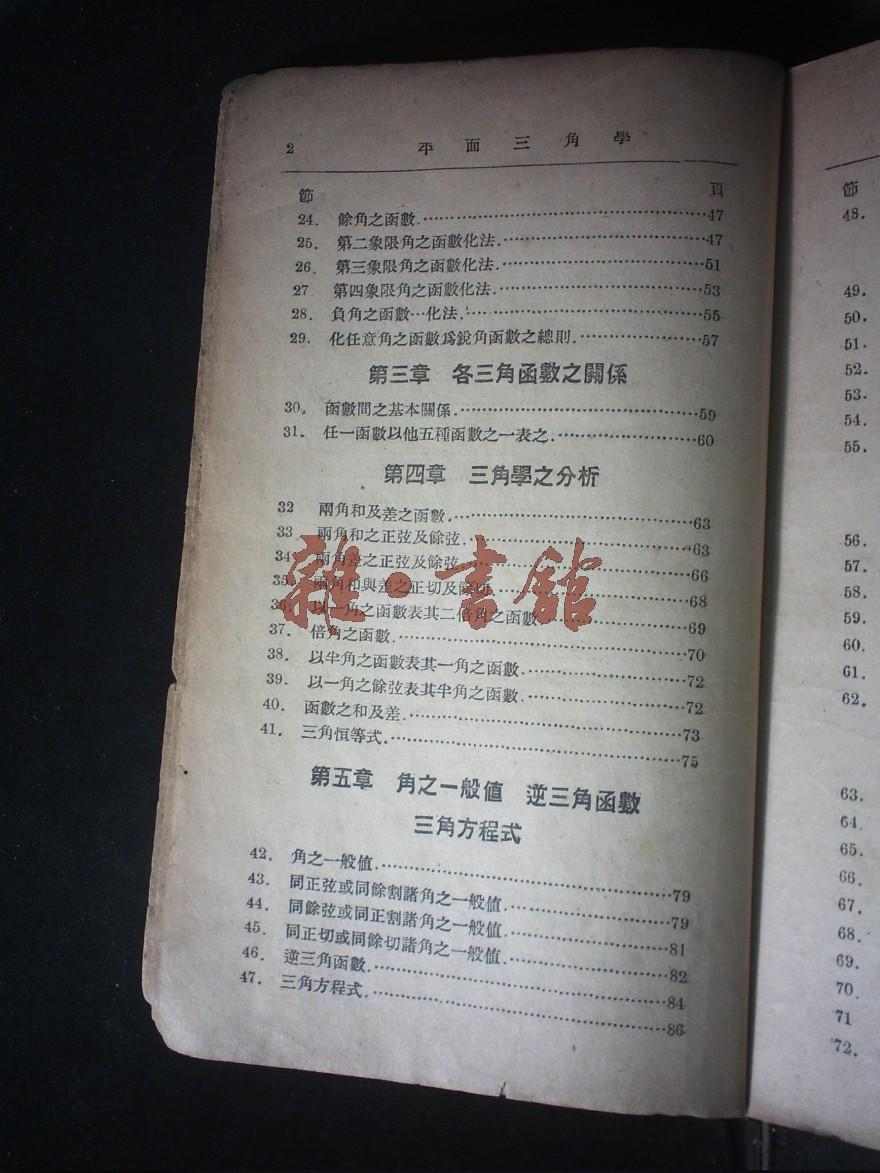 2 平面三角學
節 頁
24. 餘角之函數.………47
25. 第二象限角之函數化法.………47
26. 第三象限角之函數化法.………51
27 第四象限角之函數化法.………53
28. 負角之函數…化法.………55
29. 化任意角之函數爲銳角函數之總則.………57
第三章 各三角函數之關係
30. 函數間之基本關係.………59
31. 任一函數以他五種函數之一表之.………60
第四章 三角學之分析
32 兩角和及差之函數.………63
33 兩角和之正弦及餘弦.………63
34 兩角差之正弦及餘弦.………66
35. 兩角和與差之正切及餘切.………68
36. 以一角之函數表其二倍角之函數.………69
37. 倍角之函數.………70
38. 以半角之函數表其一角之函數.………72
39. 以一角之餘弦表其半角之函數.………72
40. 函數之和及差.………73
41. 三角恒等式.………75
第五章 角之一般値 逆三角函數
三角方程式
42. 角之一般値.………79
43. 同正弦或同餘割諸角之一般値.………79
44. 同餘弦或同正割諸角之一般値.………81
45. 同正切或同餘切諸角之一般値.………82
46. 逆三角函數.………84
47. 三角方程式.………86
雜·書舘
節
48.
49.
50.
51.
52.
53.
54.
55.
56.
57.
58.
59.
60.
61.
62.
63.
64.
65.
66.
67.
68.
69.
70.
71
72.